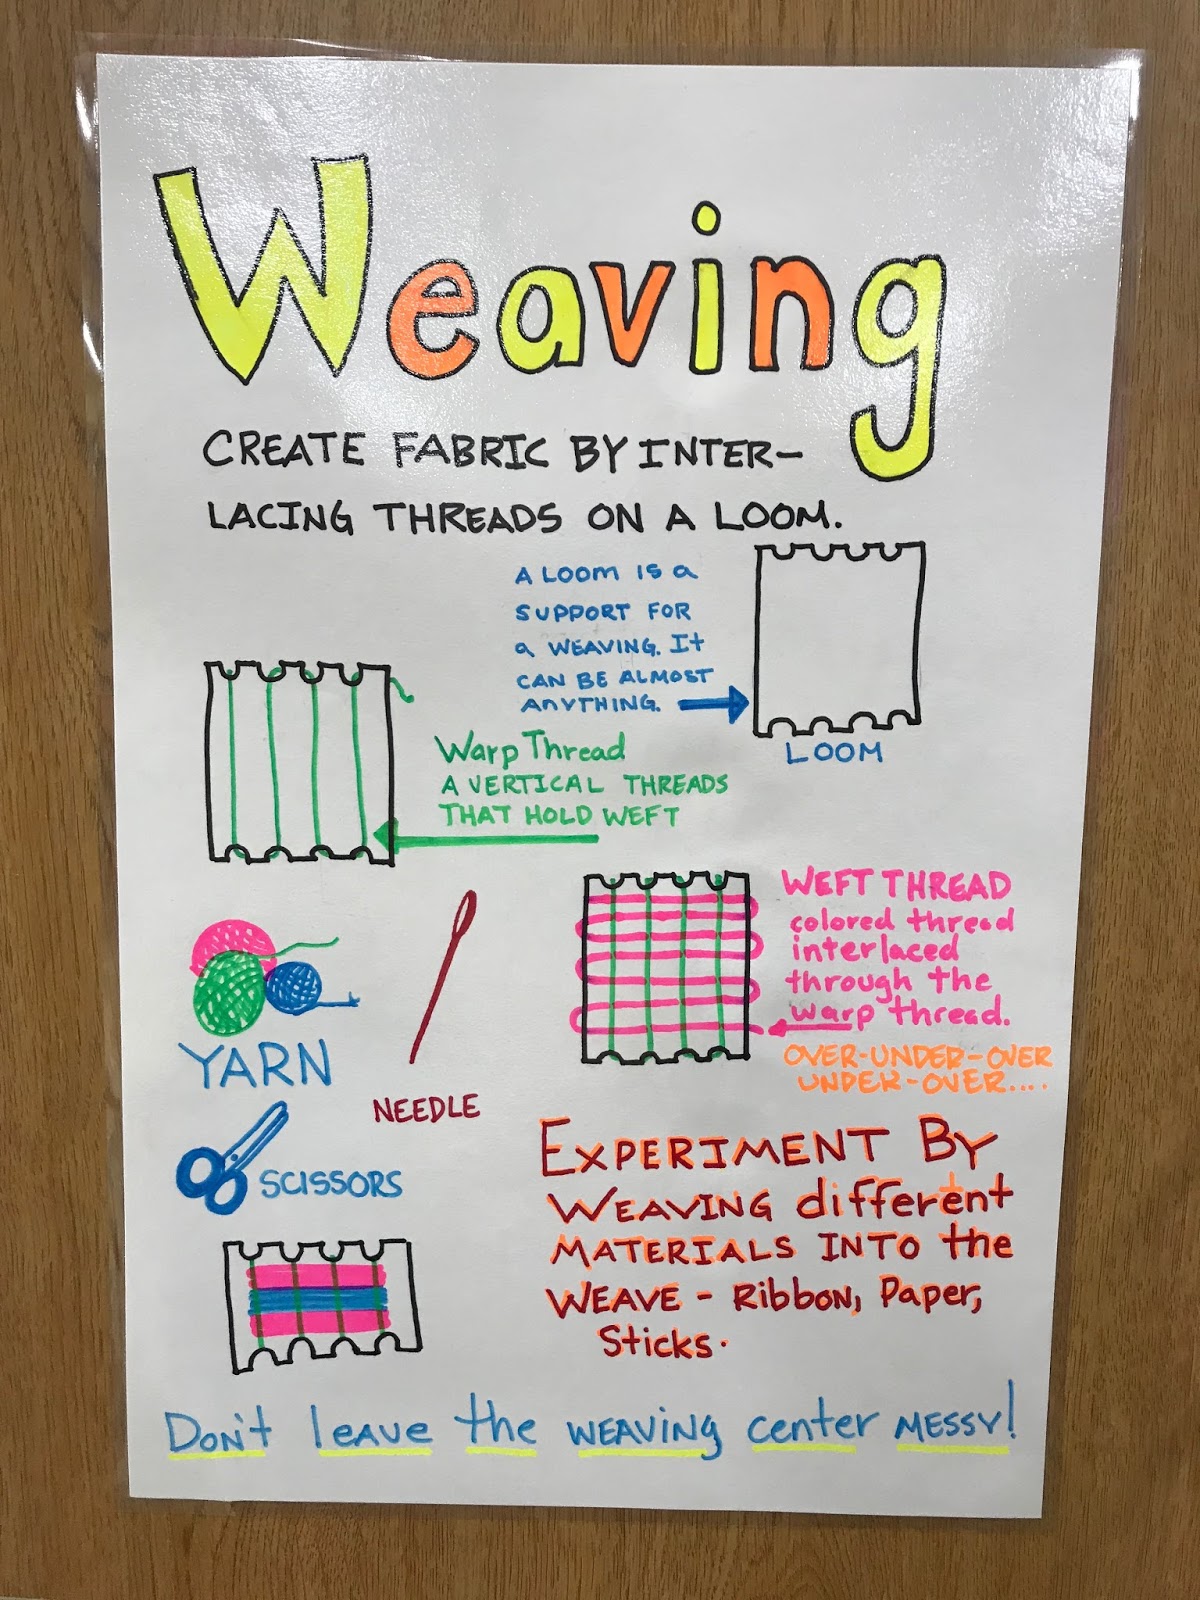 Weaving
CREATE FABRIC BY INTER-
LACING THREADS ON A LOOM.
A LOOM IS a
SUPPORT FOR
a WEAVING. It
CAN BE ALMOST
ANYTHING.
LOOM
Warp Thread
A VERTICAL THREADS
THAT HOLD WEFT
WEFT THREAD
colored thread
interlaced
through the
warp thread.
OVER-UNDER-OVER
UNDER-OVER....
YARN
NEEDLE
SCISSORS
EXPERIMENT BY
WEAVING different
MATERIALS INTO the
WEAVE - Ribbon, Paper,
Sticks.
Don't leave the WEAVING center MESSY!